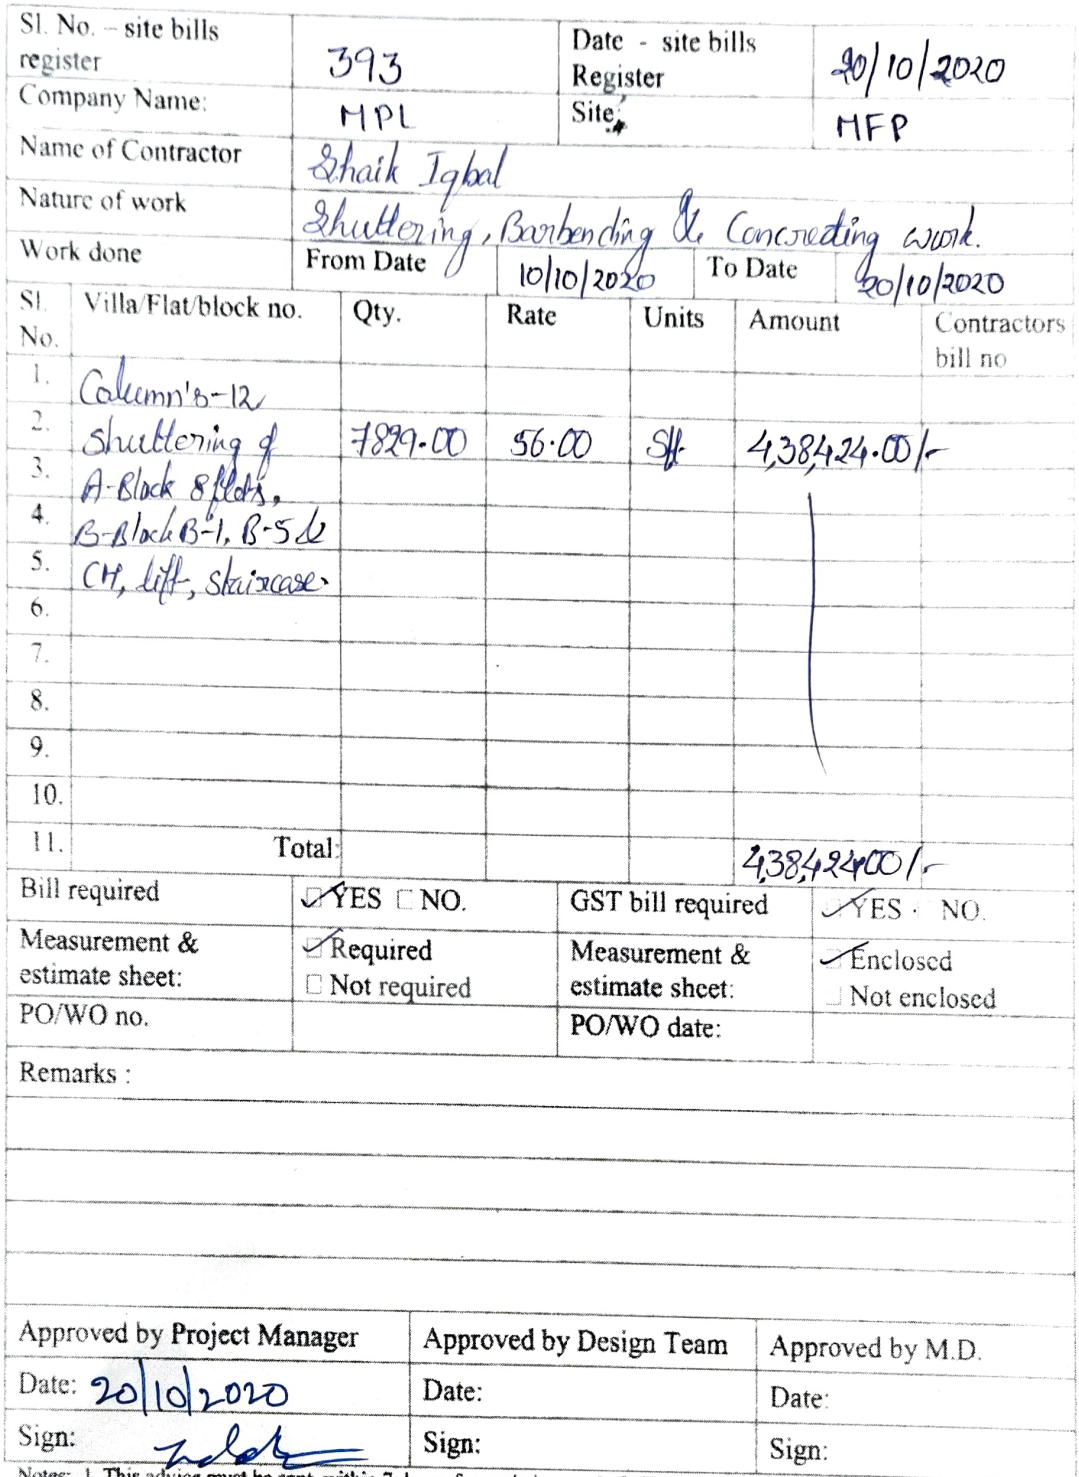 Sl. No. – site bills register 393 Date - site bills Register 20/10/2020
Company Name: MPL Site: MFP
Name of Contractor Shaik Iqbal
Nature of work Shuttering, Barbending & Concreting work.
Work done From Date 10/10/2020 To Date 20/10/2020
Sl. No. Villa/Flat/block no. Qty. Rate Units Amount Contractors bill no
1. Column's-12
2. Shuttering of 7829.00 56.00 Sft. 4,38,424.00/-
3. A-Block 8 flats,
4. B-Block B-1, B-5 &
5. CH, lift, staircase.
6.
7.
8.
9.
10.
11. Total: 4,38,424.00/-
Bill required YES NO. GST bill required YES NO.
Measurement & estimate sheet: Required Not required Measurement & estimate sheet: Enclosed Not enclosed
PO/WO no. PO/WO date:
Remarks :
Approved by Project Manager Approved by Design Team Approved by M.D.
Date: 20/10/2020 Date: Date:
Sign: Sign: Sign: